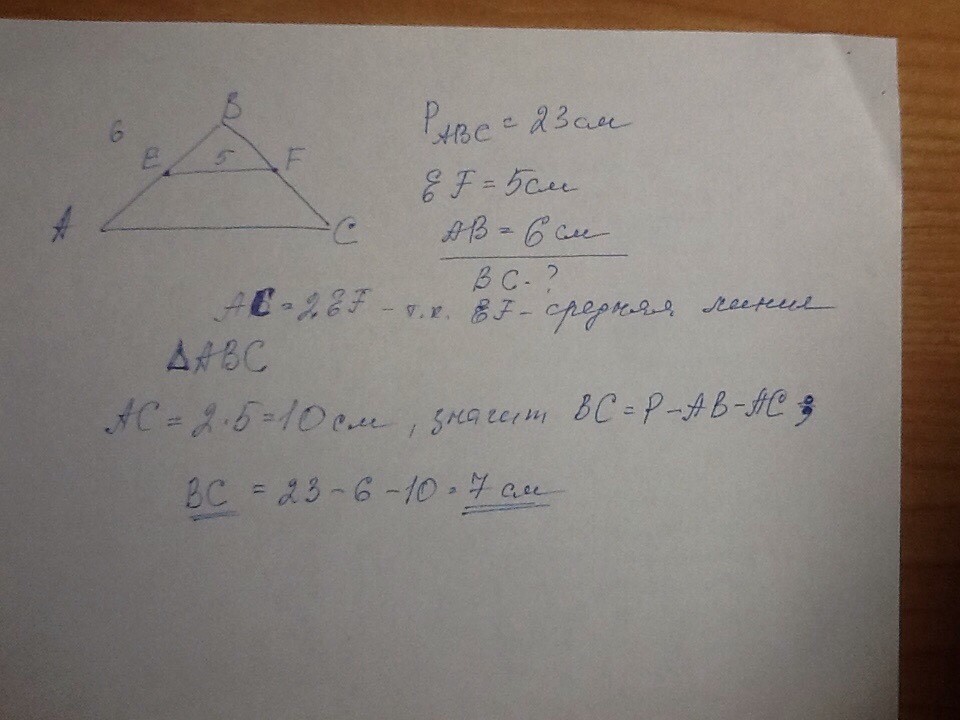 B
6
E 5 F
A C
P ABC = 23 см
EF = 5 см
AB = 6 см
BC - ?
AC = 2EF - т.к. EF - средняя линия
ΔABC
AC = 2·5 = 10 см, значит BC = P - AB - AC;
BC = 23 - 6 - 10 = 7 см